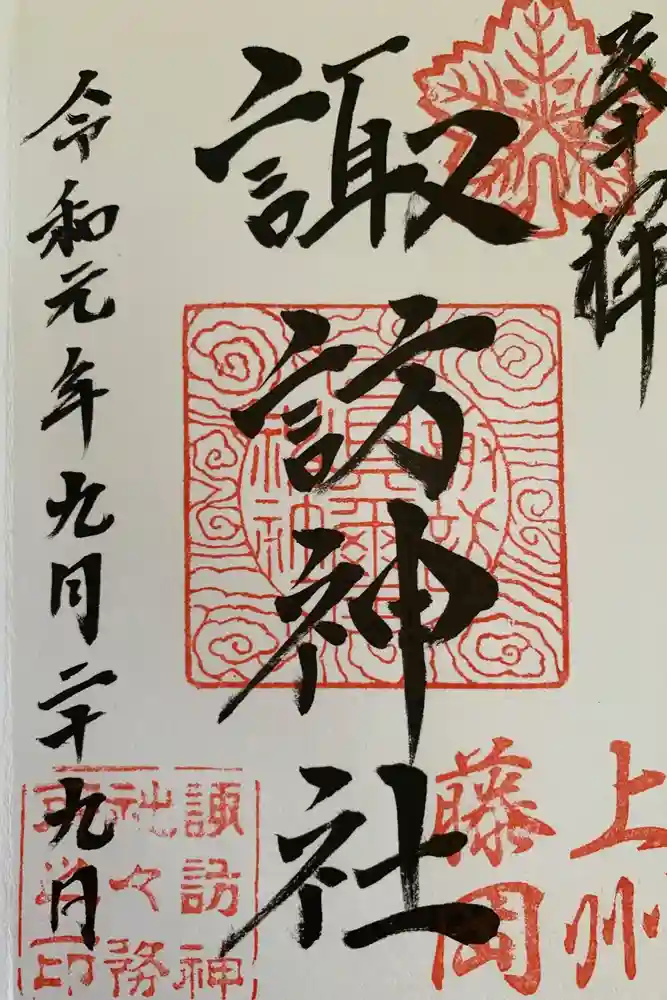 奉拝
上州
藤岡
諏訪神社
令和元年九月二十九日
諏訪神
社々務
所学印